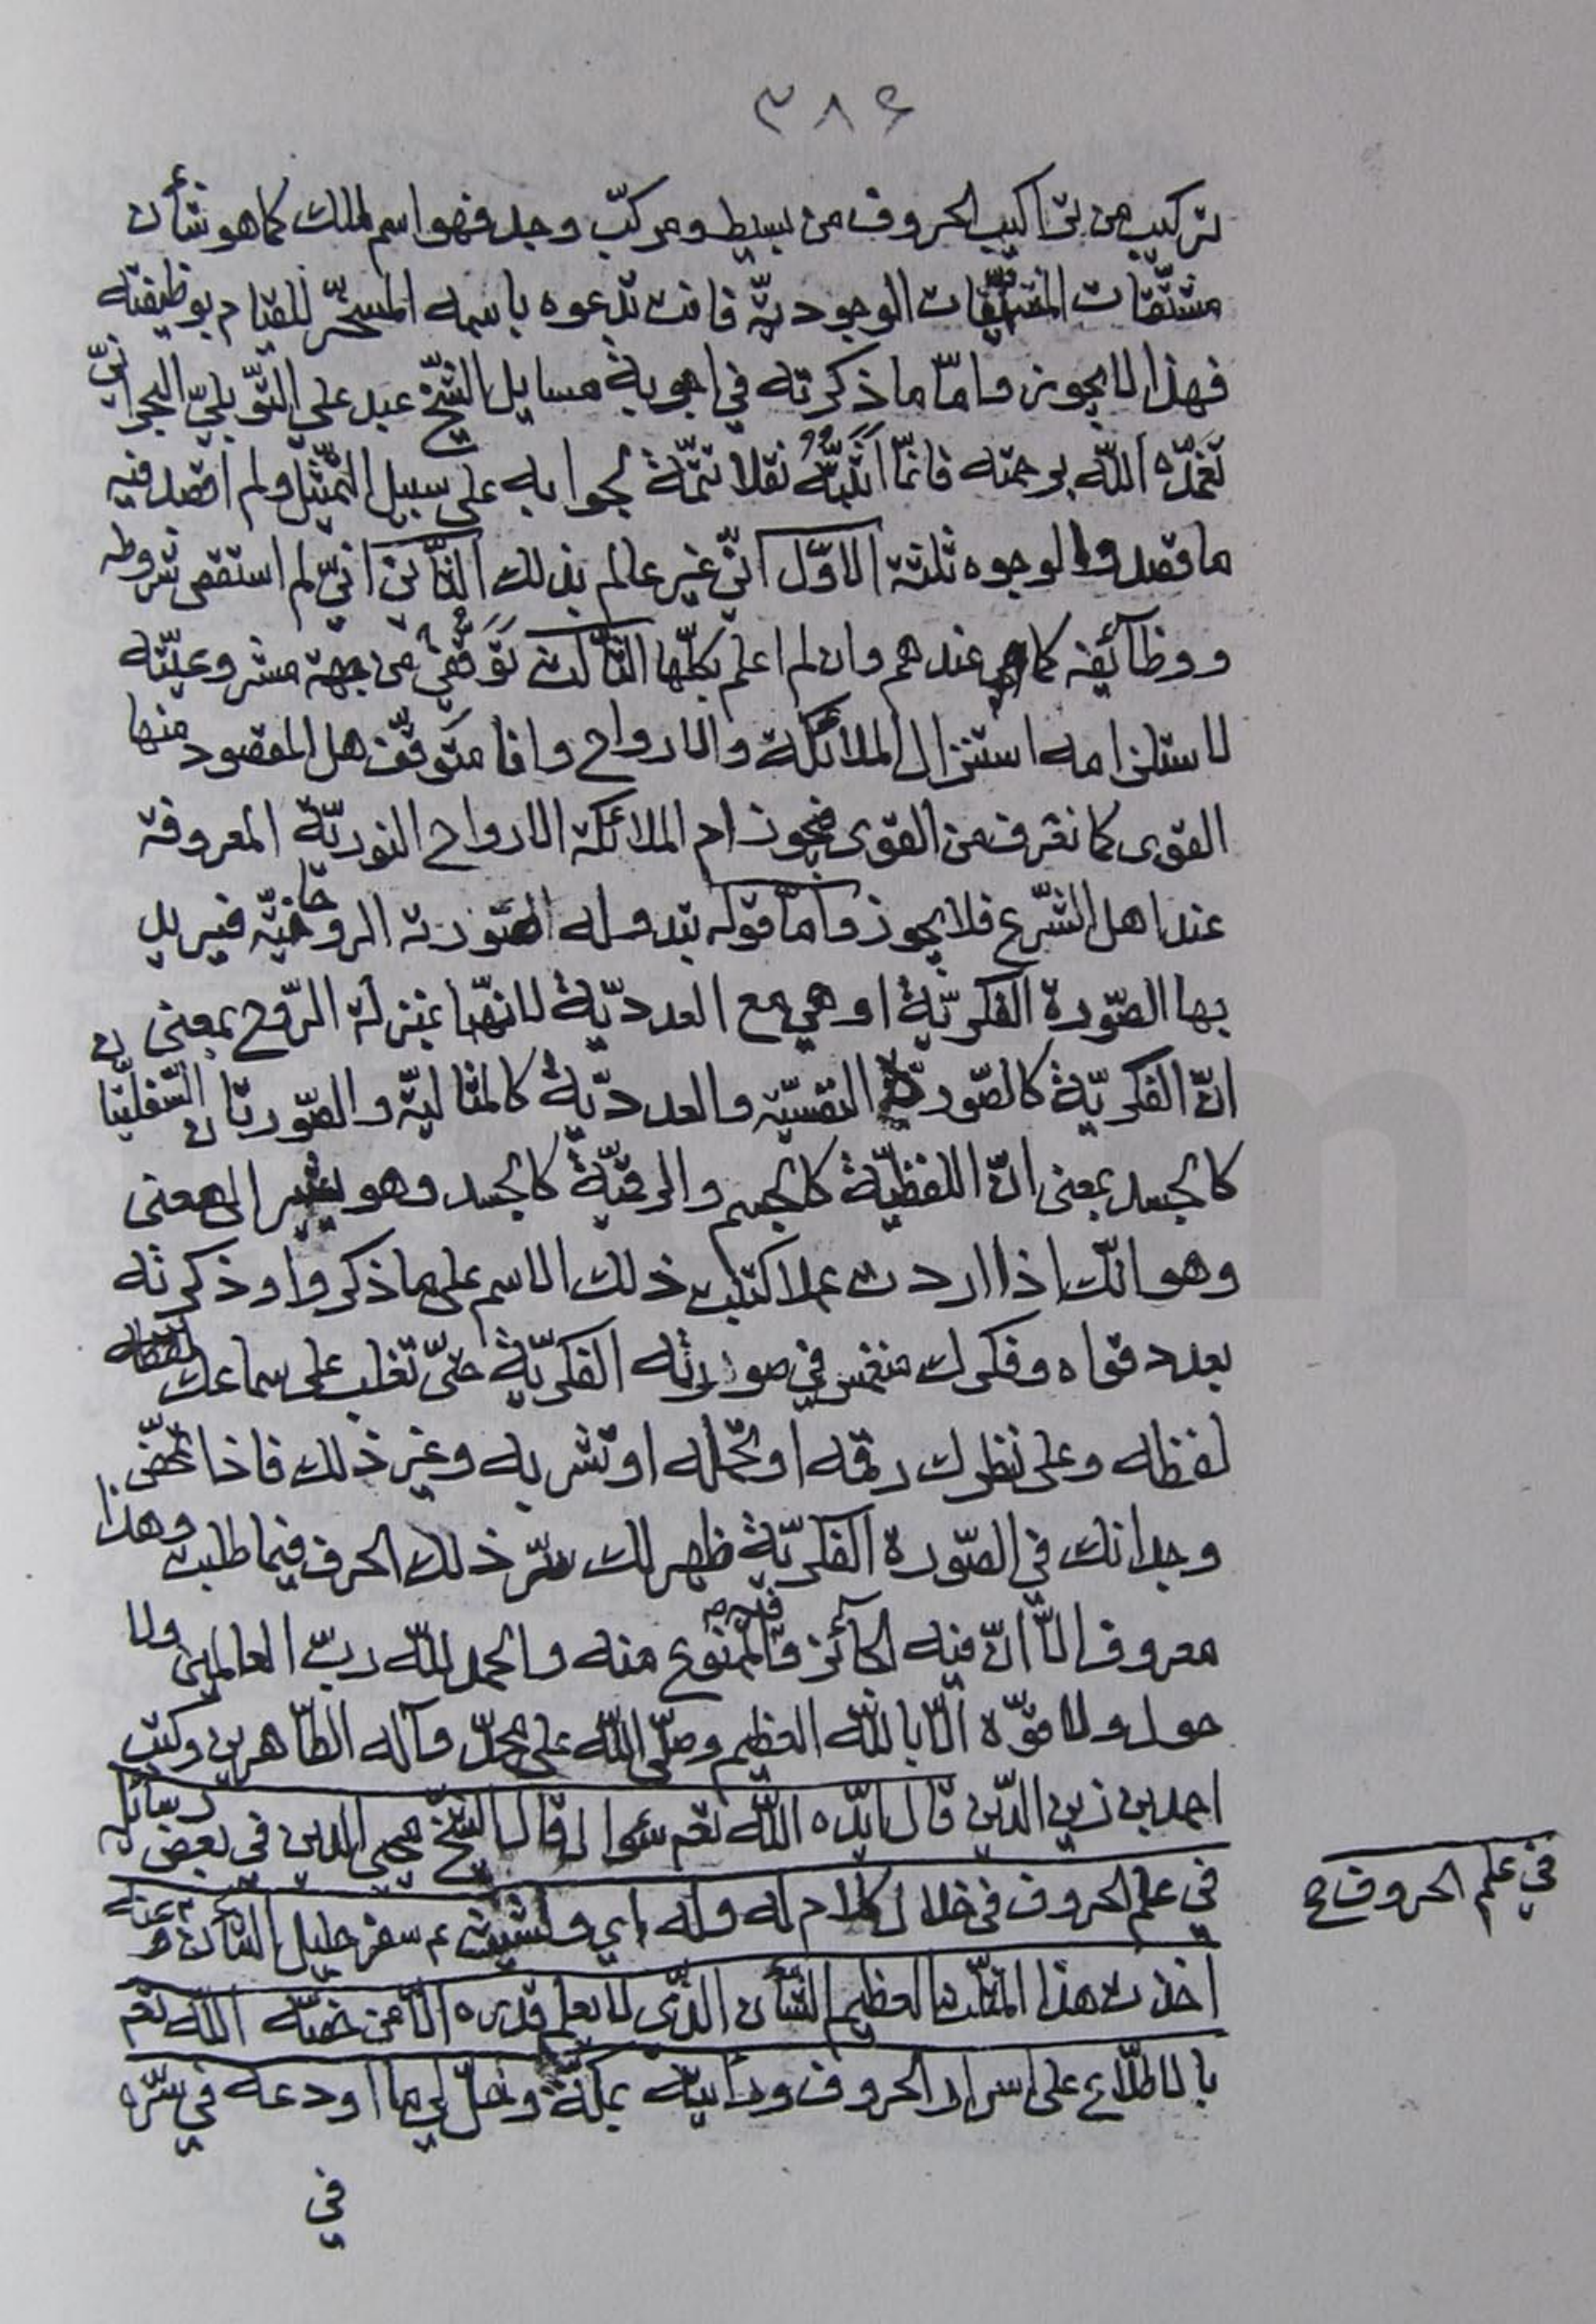 ٣٨٤
تركيب من تراكيب الحروف من بسيط ومركّب وجد فهو اسم لملك كما هو شأن
مشتقّات المتشقّقات الوجوديّة فانت تدعوه باسمه المسخّر للقيام بوظيفته
فهذا لا يجوز وامّا ما ذكرته في اجوبة مسايل الشيخ عبد علي التّوبليّ البحرانيّ
تغمّده اللّه برحمته فانّما اثبتّه نقلا تتمّة لجوابه على سبيل التمثيل ولم اقصد فيه
ما قصدوا لوجوه ثلثة الاوّل انّي غير عالم بذلك الثّاني انّي لم استقص شروطه
ووظائفه كما هي عندهم وان لم اعلم بكلّها الثّالث توقّفي من جهة مشروعيّته
لاستلزامه استنزال الملائكة والارواح وانا متوقّف هل المقصود منها
القوى كما نعرف من القوى فيجوز ام الملائكة الارواح النوريّة المعروفة
عند اهل الشّرع فلا يجوز وامّا قوله تبدو له الصّورة الروحانيّة فيريد
بها الصّورة الفكريّة او هي مع العدديّة لانّهما بمنزلة الرّوح بمعنى
انّ الفكريّة كالصّورة النفسيّة والعدديّة كالمثاليّة والصّورتان السّفليّتان
كالجسد بمعنى انّ اللفظيّة كالجسم والرقميّة كالجسد وهو يشير الى معنى
وهو انّك اذا اردت عملا كتبت ذلك الاسم على ما ذكروا وذكرته
بعدد قواه وفكرك منغمس في صورته الفكريّة حتّى تغلب على سماعك
لفظه وعلى نظرك رقمه او تحمله او تشربه وغير ذلك فاذا تمحّض
وجدانك في الصّورة الفكريّة ظهر لك سرّ ذلك الحرف فيما طلبت وهذا
معروف الّا انّ فيه الجائز وفيه الممنوع منه والحمد للّه ربّ العالمين ولا
حول ولا قوّة الّا باللّه العظيم وصلّى اللّه على محمّد وآله الطّاهرين وكتب
احمد بن زين الدّين قال ايّده اللّه تعم سؤال قال الشيخ محيي الدين في بعض رسائله
في علم الحروف في خلال كلام له وله اي ولشيث ع سفر جليل الشّان وعنه
اخذت هذا المثلّث العظيم الشّأن الذّي لا يعلم قدره الّا من خصّه اللّه تعم
بالاطّلاع على اسرار الحروف ورأيته بمكّة وتحلّ لي ما اودعه في سرّه
في
في علم الحروف ع